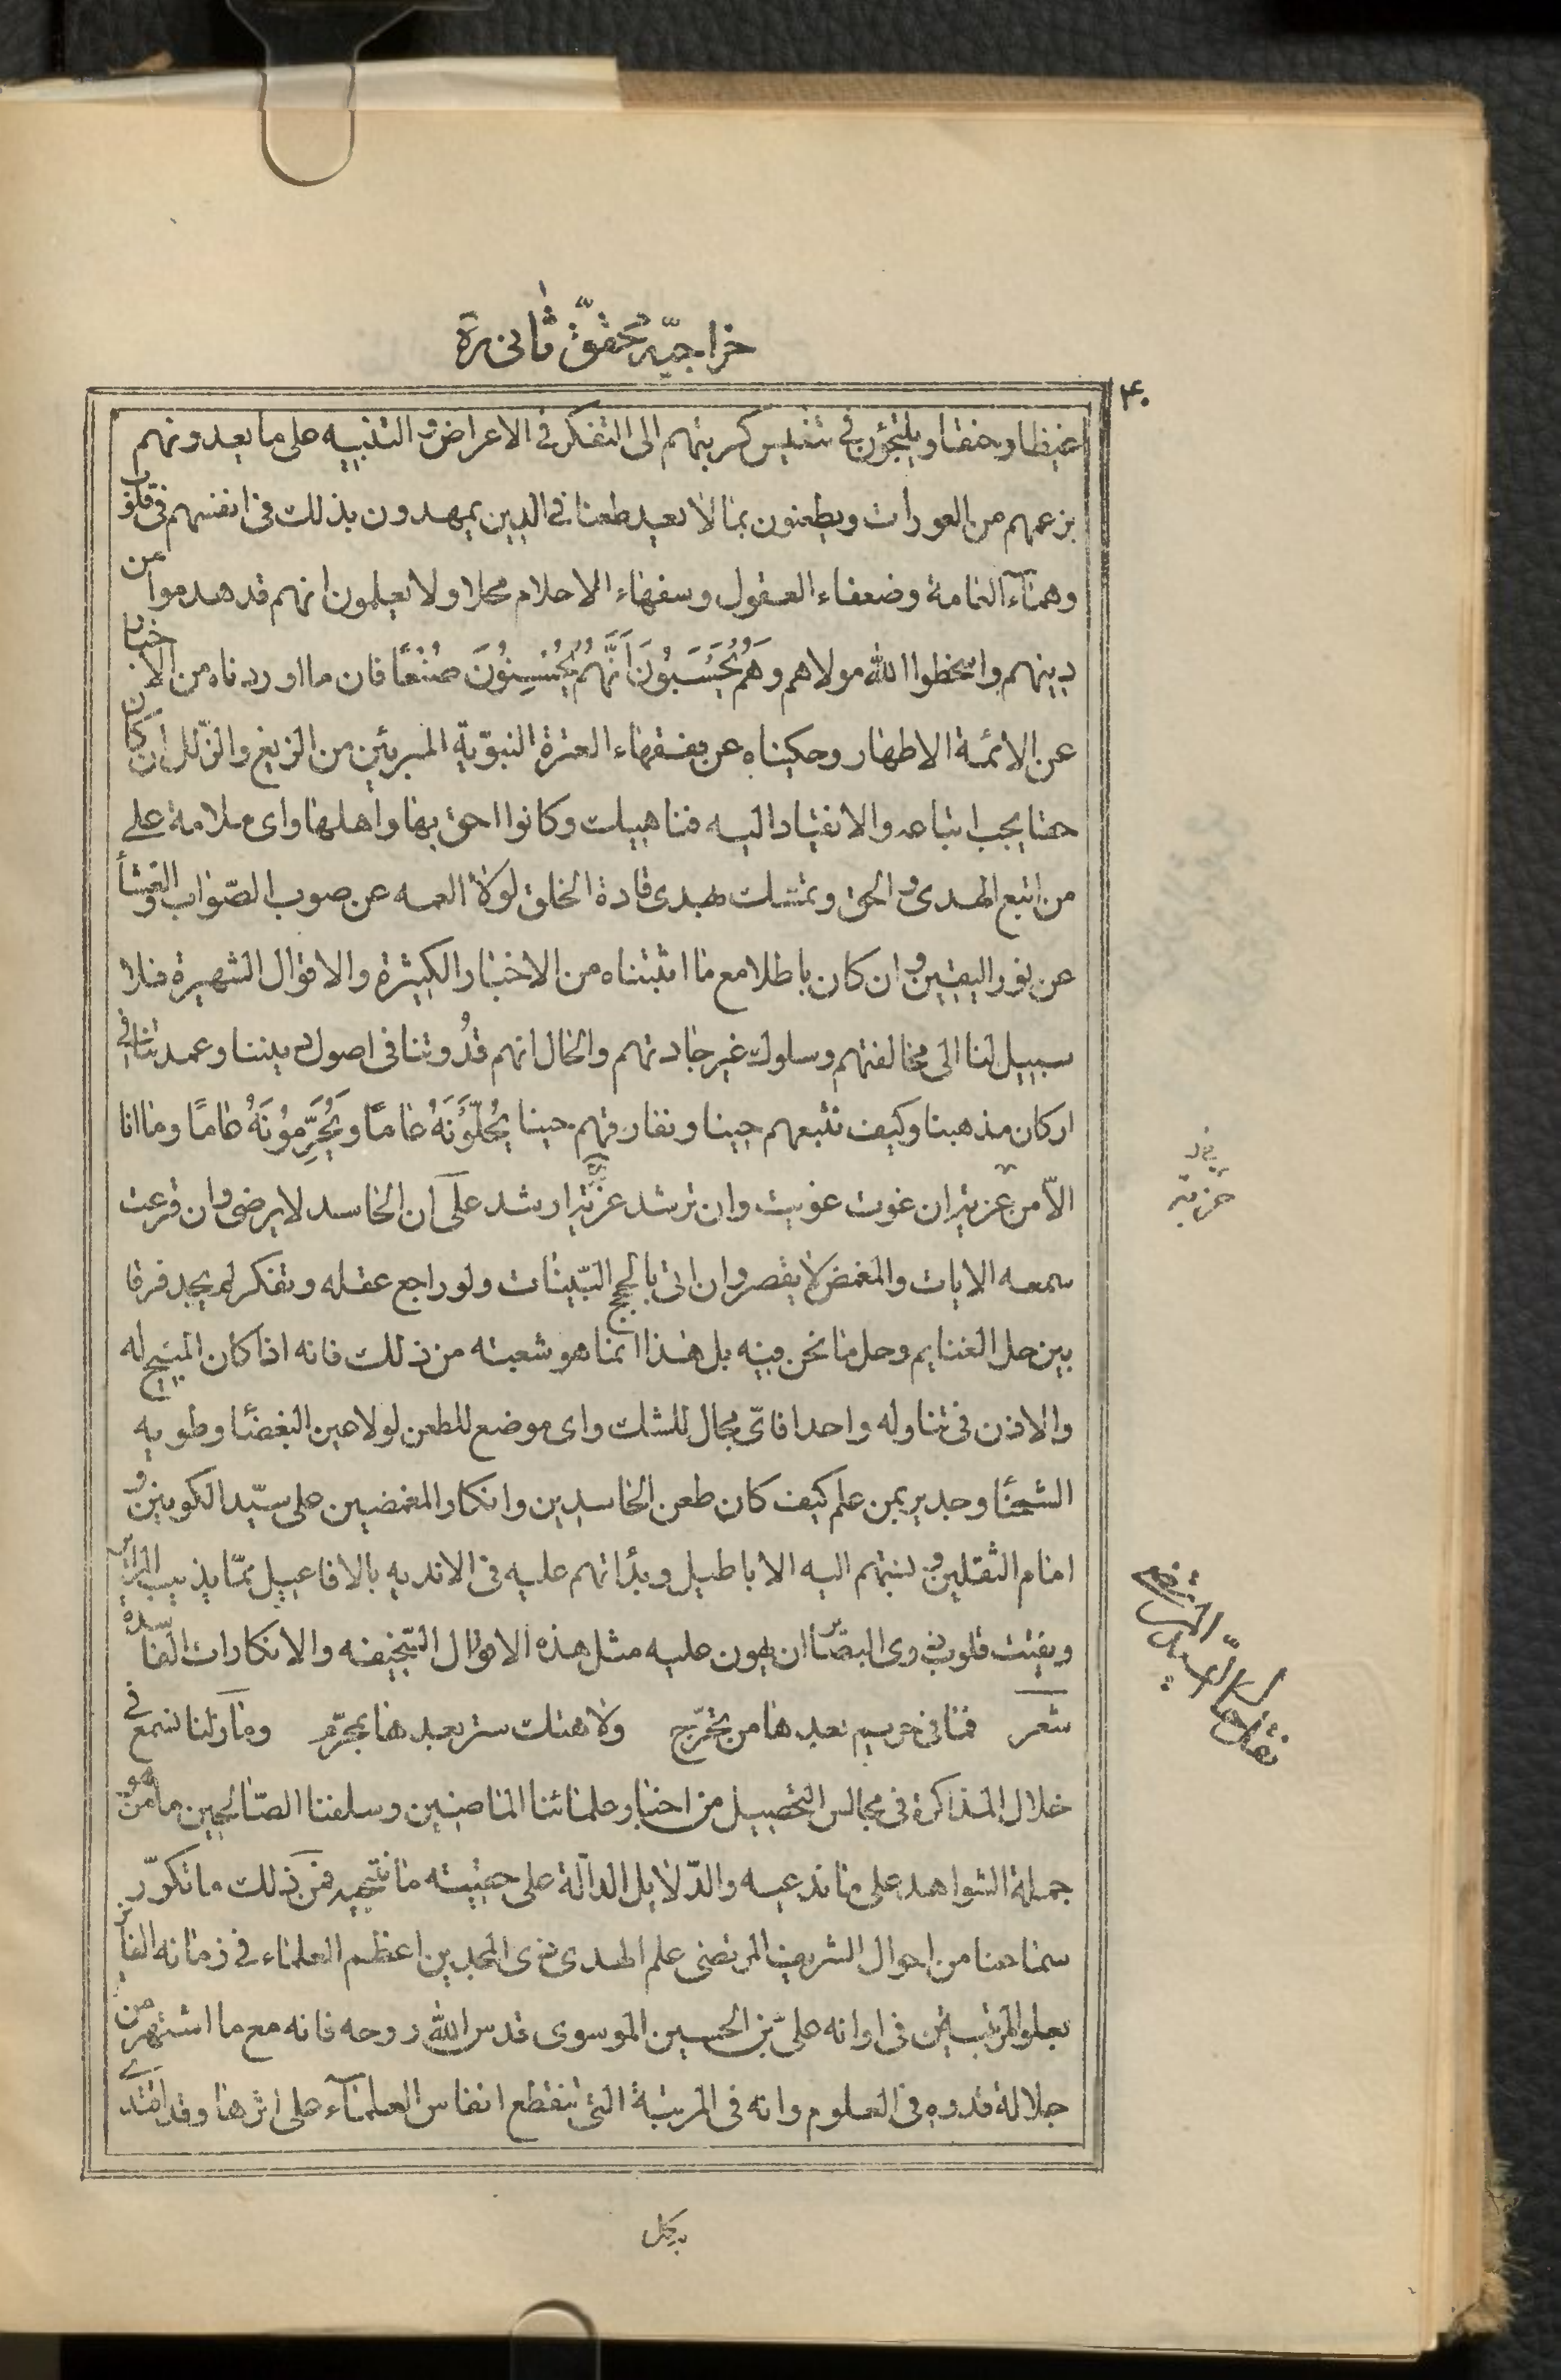 خراجيّه محقّق ثانى ره
۴۰
غيظا وحنقا ويلتجؤن فى تنفيس كربتهم الى التفكر فى الاعراض والتنبيه على ما يعدونهم
بزعمهم من العورات ويطعنون بما لا يعيد طعنا فى الدين يمهدون بذلك فى انفسهم فى قلوب
وهمآء العامة وضعفاء العقول وسفهاء الاحلام محلا ولا يعلمون انهم قد هدموا من
دينهم واسخطوا الله مولاهم وَهُمْ يَحْسَبُونَ اَنَّهُمْ يُحْسِنُونَ صُنْعًا فان ما اوردناه من الاخبار
عن الائمة الاطهار وحكيناه عن فقهاء العترة النبويّة المبرئين من الزيغ والزلل ان كان
حقا يجب اتباعه والانقياد اليه فناهيك وكانوا احق بها واهلها واى ملامة على
من اتبع الهدى والحق وتمسك بهدى قادة الخلق لولا العمه عن صوب الصّواب والغشأ
عن نور اليقين وان كان باطلا مع ما اثبتناه من الاخبار الكثيرة والاقوال الشهيرة فلا
سبيل لنا الى مخالفتهم وسلوك غير جادتهم والحال انهم قُدوتنا فى اصول ديننا وعمدتنا فى
اركان مذهبنا وكيف نتبعهم حينا ونفارقهم حينا يُحِلّوُنَهُ عٰامًا وَيُحَرِّمُونَهُ عٰامًا وما انا
الاّ من غزية ان غوت غويت وان ترشد غزيّة ارشد على ان الحاسد لا يرضى وان قرعت
سمعه الايات والمغمض لا يقصر وان اتى بالحجج البيّنات ولو راجع عقله وتفكر لم يجد فرقا
بين حل الغنايم وحل ما نحن فيه بل هذا انما هو شعبته من ذلك فانه اذا كان المبيح له
والاذن فى تناوله واحدا فاىّ مجال للشك واى موضع للطعن لولا عين البغضأ وطويه
الشحنأ وجدير بمن علم كيف كان طعن الحاسدين وانكار المغمضين على سيّد الكونين و
امام الثقلين ونسبتهم اليه الاباطيل وبذائهم عليه فى الانديه بالافاعيل ممّا يذيب المراير
ويفتت قلوب ذوى البصائر ان يهون عليه مثل هذه الاقوال السّخيفه والانكارات الفاسدة
شعر فما فى حريم بعدها من تحرّج ولا هتك ستر بعدها بمحرّم وما زلنا نسمع فى
خلال المذاكرة فى مجالس التحصيل من اخبار علمائنا الماضين وسلفنا الصّالحين ما هو من
جملة الشواهد على ما ندعيه والدّلايل الدالّة على حقيته ما ننتحيه فمن ذلك ما تكرّر
سماعنا من احوال الشريف المرتضى علم الهدى ذى المجدين اعظم العلماء فى زمانه الفايز
بعلو المرتبتين فى اوانه علىّ بن الحسين الموسوى قدس الله روحه فانه مع ما اشتهر من
جلالة قدره فى العلوم وانه فى المرتبة التى ينقطع انفاس العلمآء على اثرها وقد اقتدى
غزيه
نقل حال السيّد المرتضى
بكل